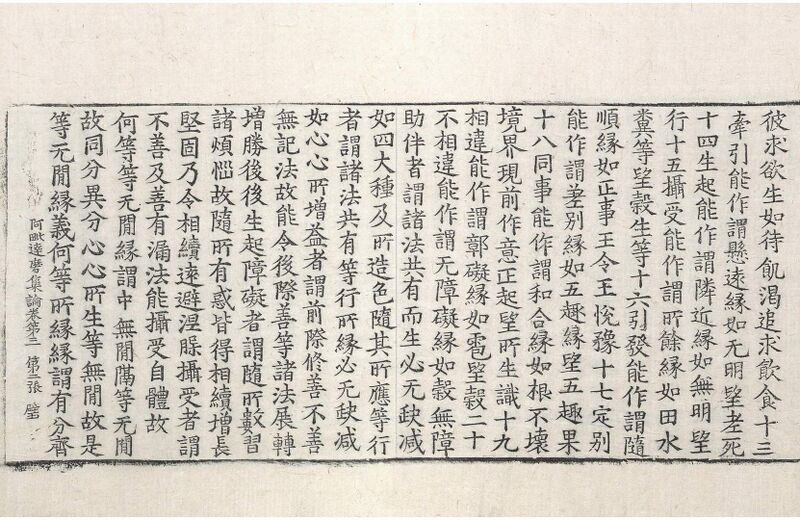 彼求欲生如待飢渴追求飲食十三
牽引能作謂懸遠緣如无明望老死
十四生起能作謂隣近緣如無明望
行十五攝受能作謂所餘緣如田水
糞等望穀生等十六引發能作謂隨
順緣如正事王令王悅豫十七定別
能作謂差別緣如五趣緣望五趣果
十八同事能作謂和合緣如根不壞
境界現前作意正起望所生識十九
相違能作謂鄣礙緣如雹望穀二十
不相違能作謂无障礙緣如穀無障
助伴者謂諸法共有而生必无缺减
如四大種及所造色隨其所應等行
者謂諸法共有等行所緣必无缺减
如心心所增益者謂前際修善不善
無記法故能令後際善等諸法展轉
增勝後後生起障礙者謂隨所數習
諸煩惱故隨所有惑皆得相續增長
堅固乃令相續遠避涅槃攝受者謂
不善及善有漏法能攝受自體故
何等等无閒緣謂中無閒隔等无閒
故同分異分心心所生等無閒故是
等无閒緣義何等所緣緣謂有分齊
阿毗達磨集論卷第三 第三張